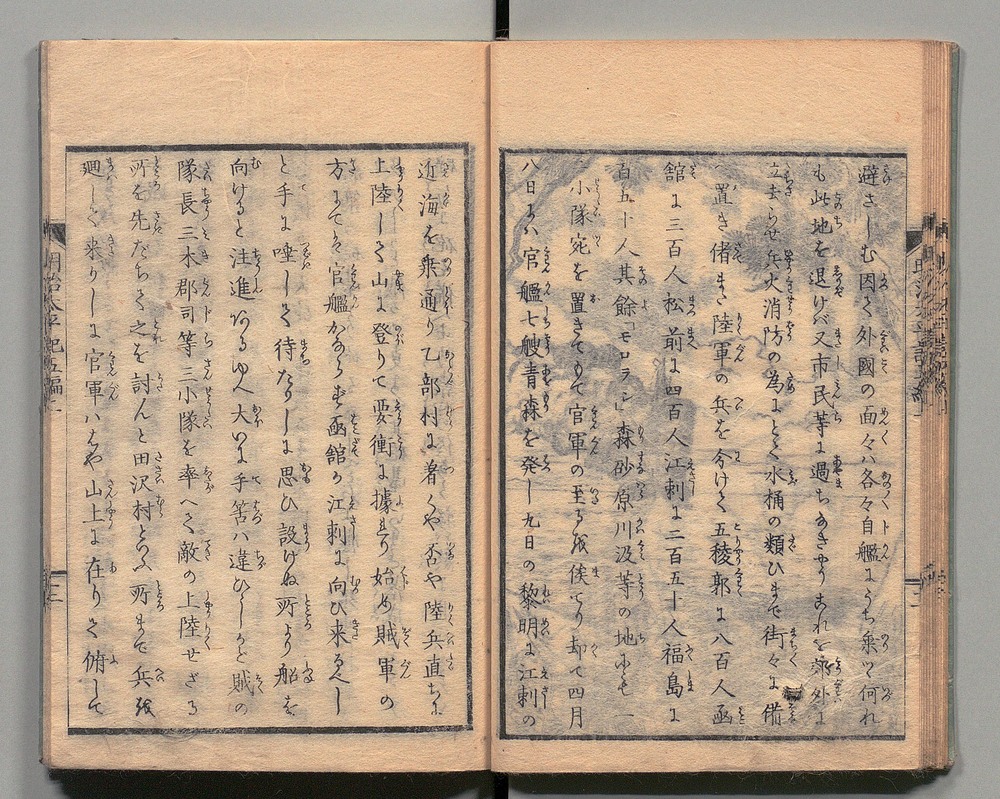 避さしむ因て外國の面々ハ各々自艦にうち乗ツ何れ
も此地を退けバ又市民等に過ちあきやうあれを
立去らせ兵火消防の為にとて水桶の類ひまで街々に備
置き偖また陸軍の兵を分けて五稜郭に八百人函
館に三百人松前に四百人江刺に二百五十人福島に
百五十人其餘「モロラン」森砂原川汲等の地にも一
小隊宛を置きてもて官軍の至るを俟てり却て四月
八日に八官艦七艘青森を発し九日の黎明に江刺の
近海を乗通り乙部村に着くや否や陸兵直ちに
上陸して山に登りて要衝に據れり始め賊軍の
方にてハ官艦かならず函館か江刺に向ひ来るべし
と手に唾して待たりしに思ひ設けぬ所より船を
向けると注進ありゆへ大いに手筈ハ違ひしかど賊の
隊長三木郡司等三小隊を率へて敵の上陸せざる
所を先だちて之を討んと田沢村といふ所まで兵を
廻して来りしに官軍ハはや山上に在りて俯して
明治太平記五編一